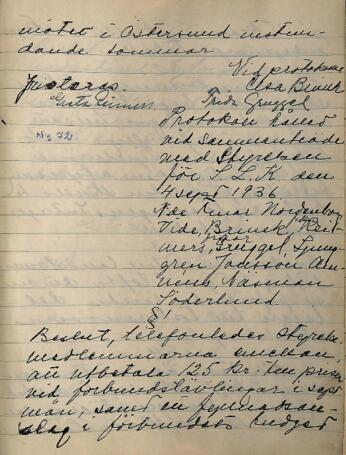 mötet i Östersund instun-
dande sommar
Vid protokollet
Elsa Brunk
Justeras.
Greta Frida Gruggel
No 72 Protokoll hållet
vid sammanträde
med Styrelsen
för S. L. K. den
4 sept 1936.
Nde Fruar Nordenborg
Vide, Brunk,
Gruggel, Ljung-
gren Jonsson
Näsman
Söderlund
§ 1
Beslut, telefonledes styrelse-
medlemmarna emellan,
att utbetala 125 kr. till priser
vid förbundstävlingar i sept
mån, samt en
slag i förbundets budget